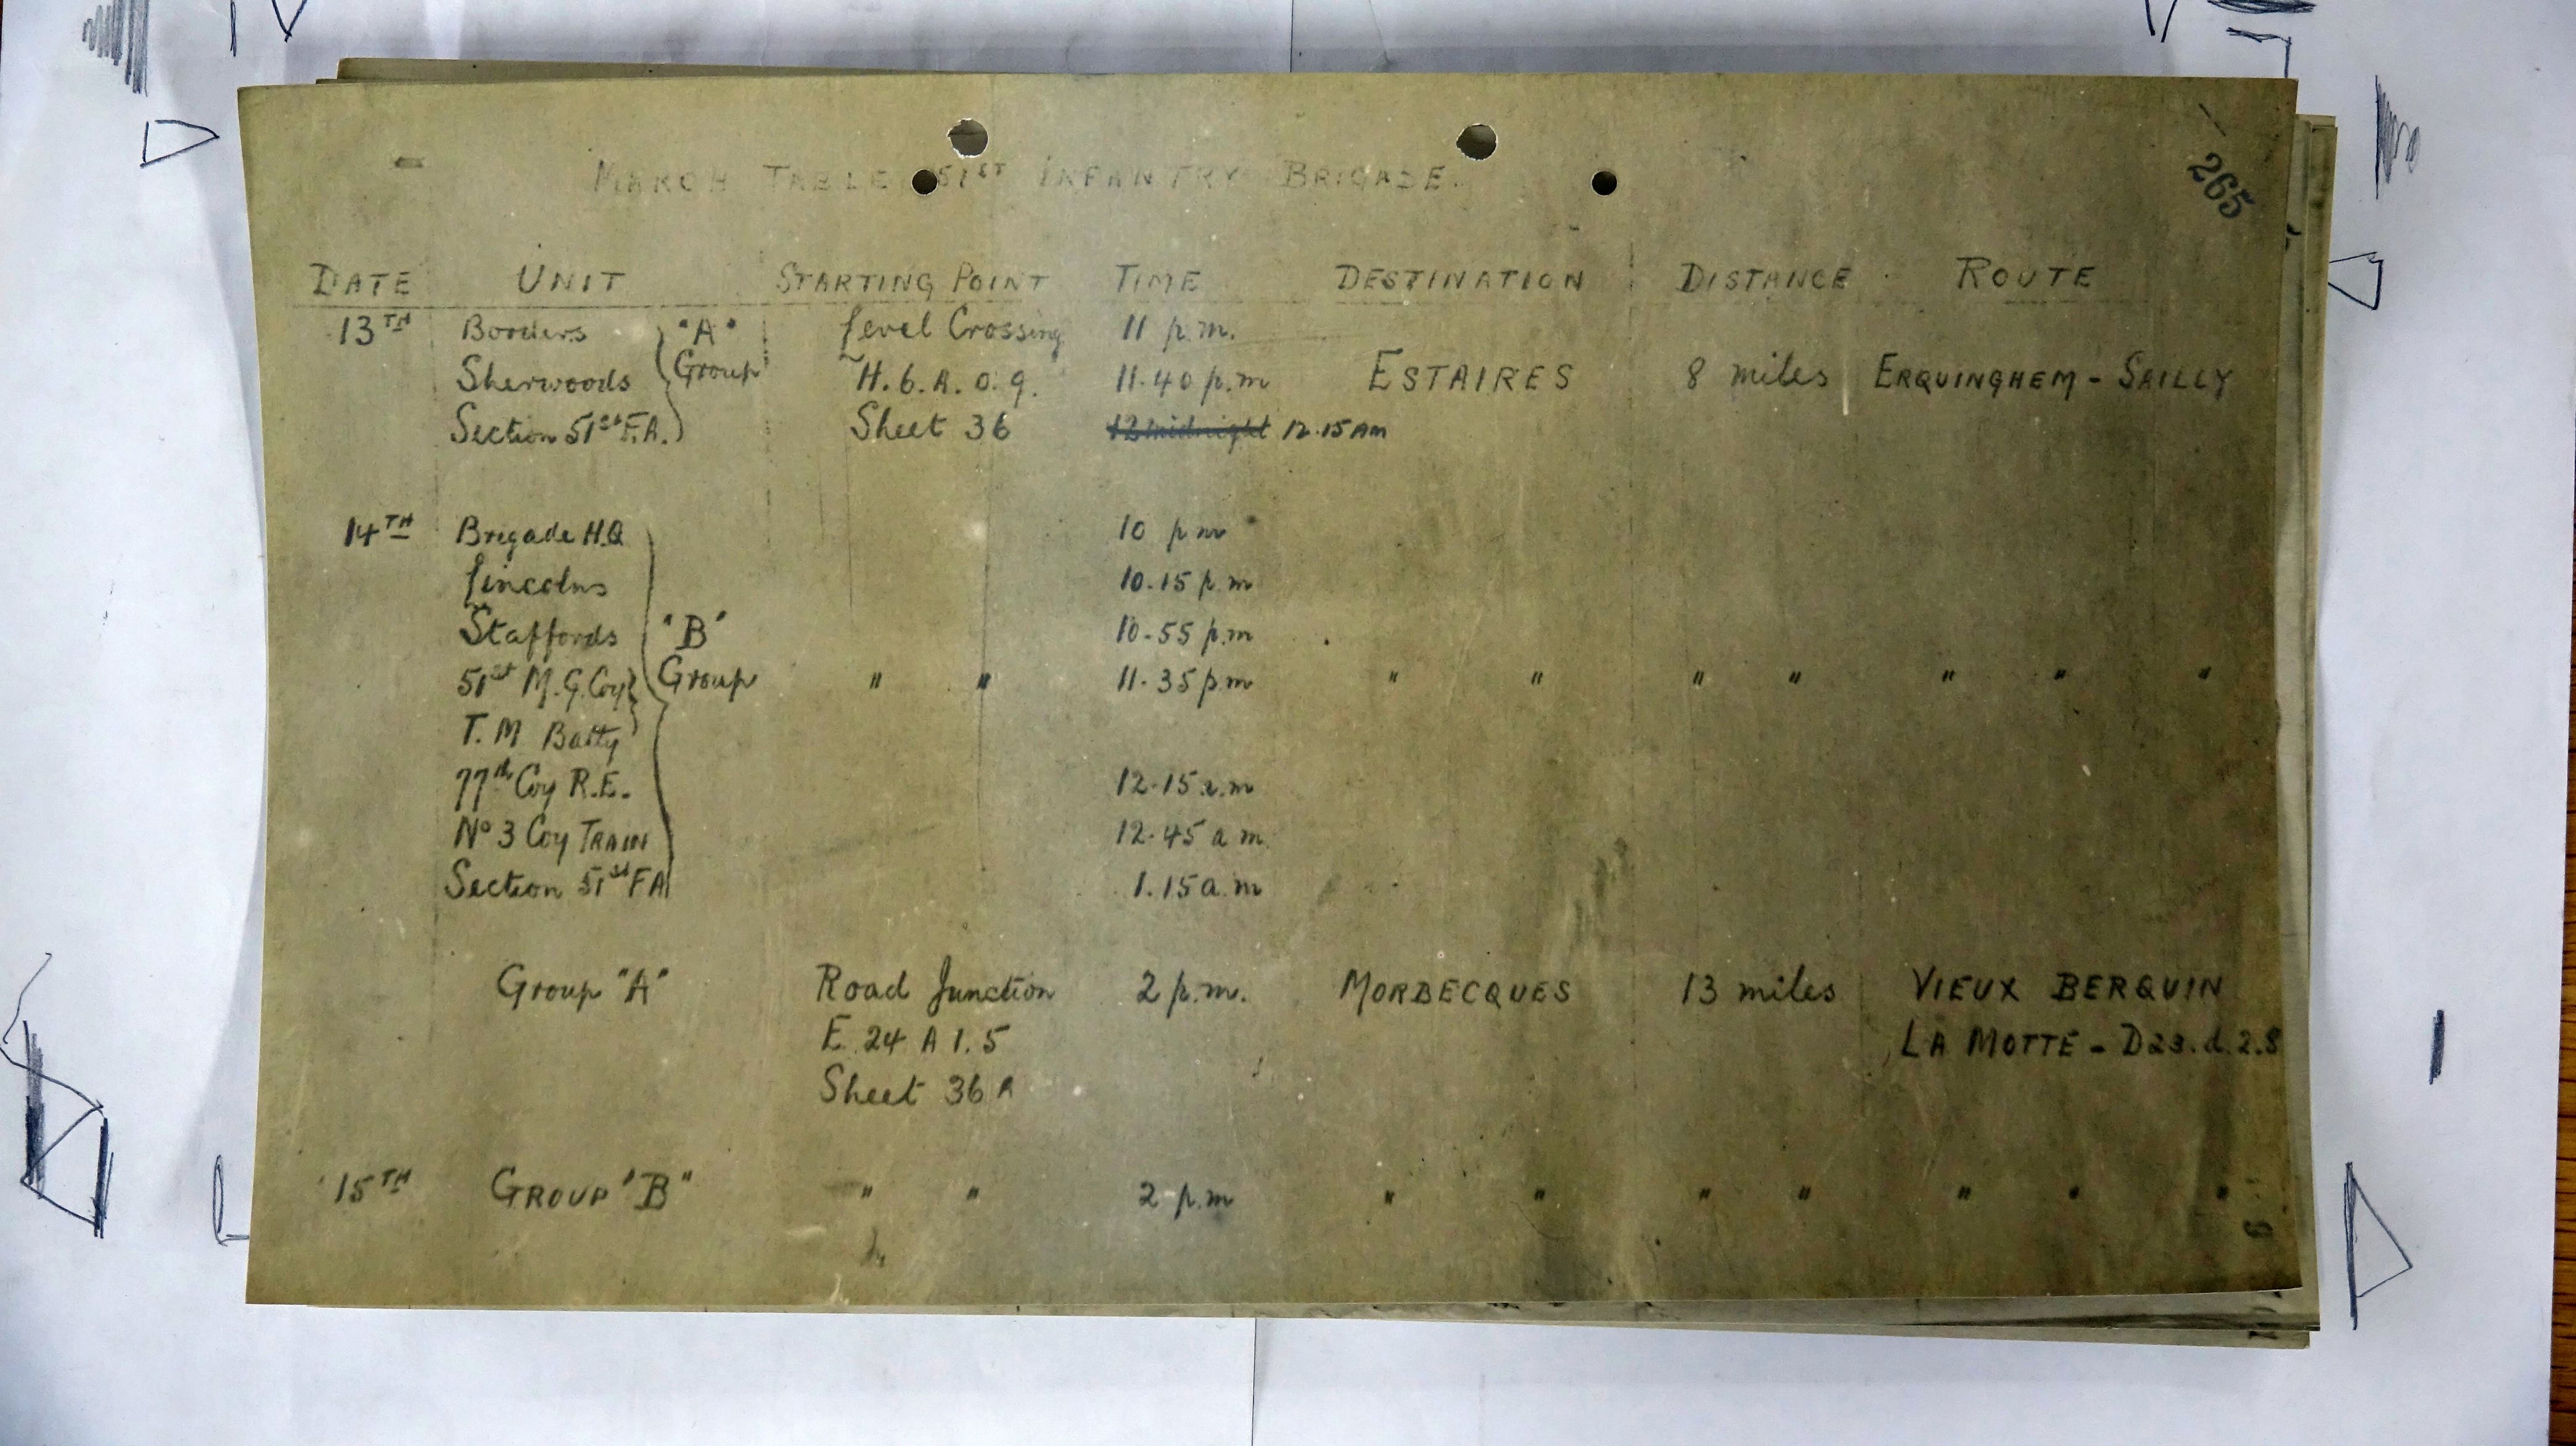 265
MARCH TABLE 51ST INFANTRY BRIGADE.
DATE UNIT STARTING POINT TIME DESTINATION DISTANCE ROUTE
13TH Borders "A" Level Crossing 11 p.m.
Sherwoods Group H.6.A.0.9. 11.40 p.m ESTAIRES 8 miles ERQUINGHEM - SAILLY
Section 51st F.A. Sheet 36 12 midnight 12.15 AM
14TH Brigade H.Q 10 pm
Lincolns 10.15 p.m
Staffords "B" 10-55 p.m
51st M.G. Coy Group " " 11.35 pm " " " " " " "
T.M Batty
77th Coy R.E. 12.15 a.m
No 3 Coy TRAIN 12.45 a m
Section 51st F A 1.15 a.m
Group "A" Road Junction 2 p.m. MORBECQUES 13 miles VIEUX BERQUIN
E 24 A 1.5 LA MOTTE - D23.d.2.8
Sheet 36 A
15TH GROUP "B" " " 2 p.m " " " " " " "